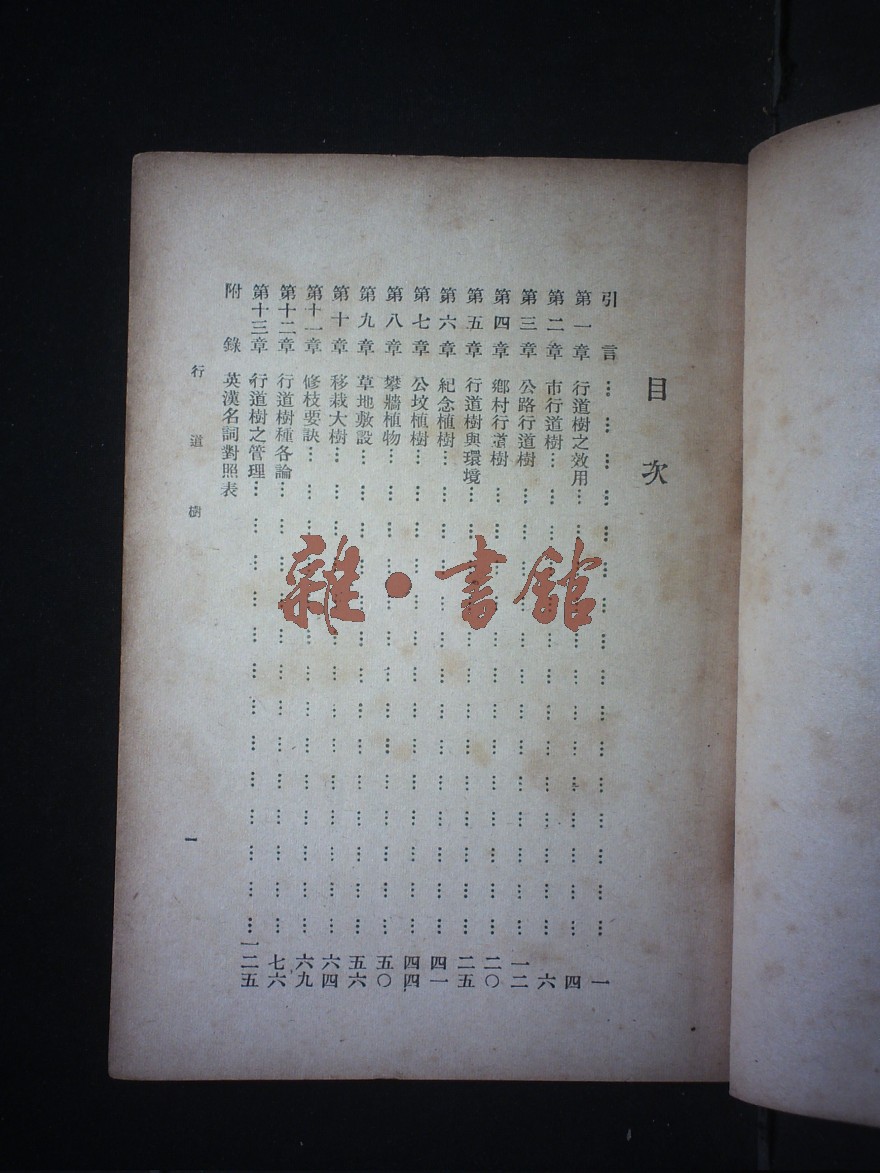 目次
引言……一
第一章 行道樹之效用……四
第二章 市行道樹……六
第三章 公路行道樹……一二
第四章 鄉村行道樹……二〇
第五章 行道樹與環境……二五
第六章 紀念植樹……四一
第七章 公墳植樹……四四
第八章 攀牆植物……五〇
第九章 草地敷設……五六
第十章 移栽大樹……六四
第十一章 修枝要訣……六九
第十二章 行道樹種各論……七六
第十三章 行道樹之管理……一二五
附錄 英漢名詞對照表
行道樹 一
雜·書館